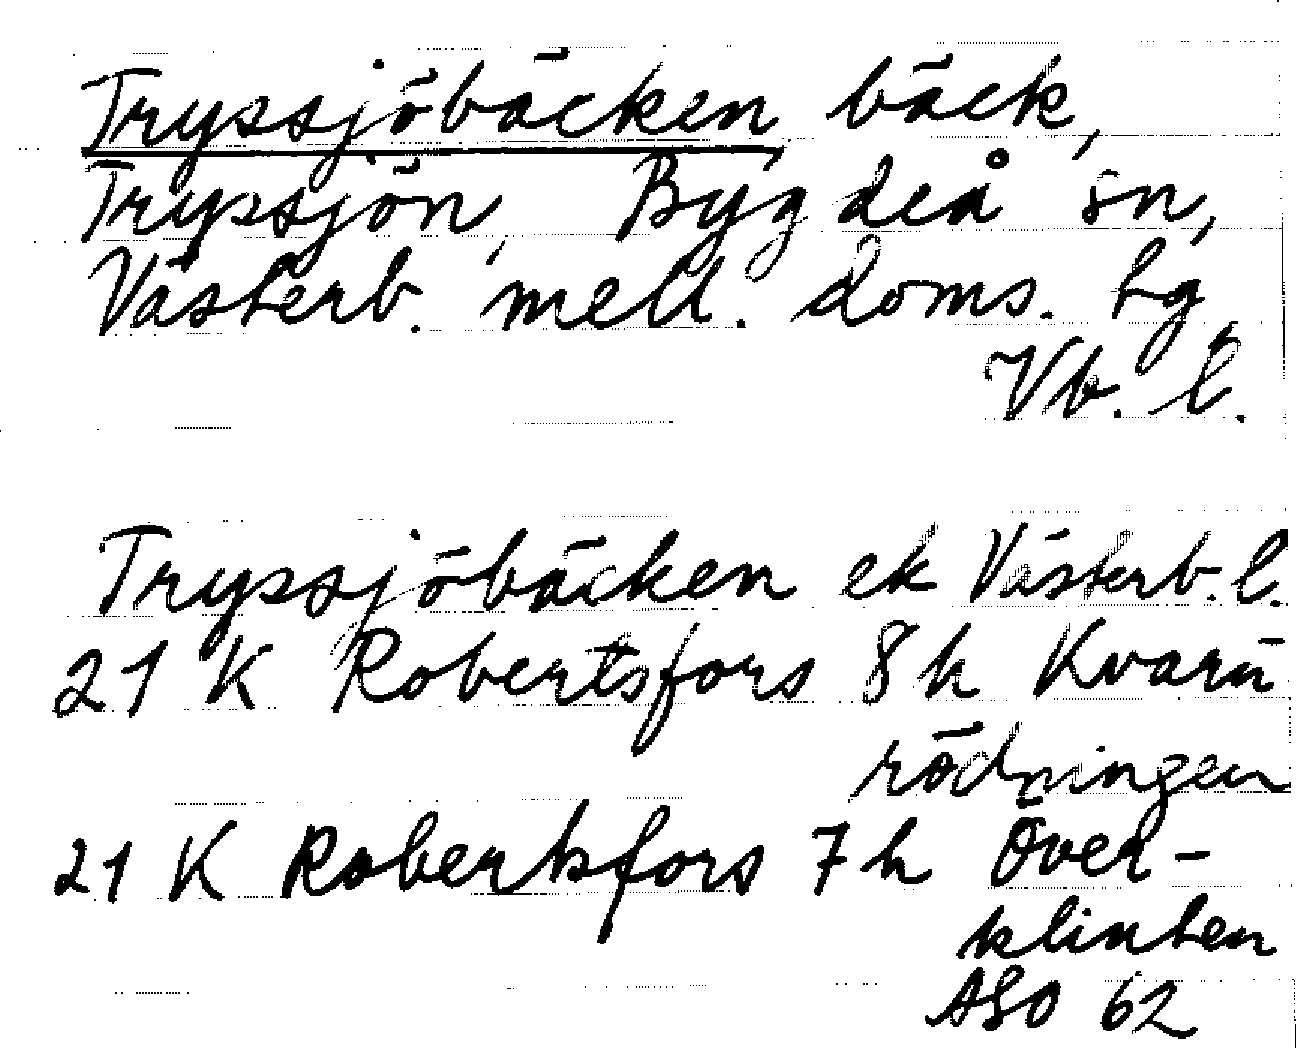 Tryssjöbäcken, bäck,
Tryssjön, Bygdeå sn,
Västerb. mell. doms. tg
Vb. l.
Tryssjöbäcken ek Västerb. l.
21 K Robertsfors 8 h Kvarn
rödningen
21 K Robertsfors 7 h Över-
klinten
ASO 62